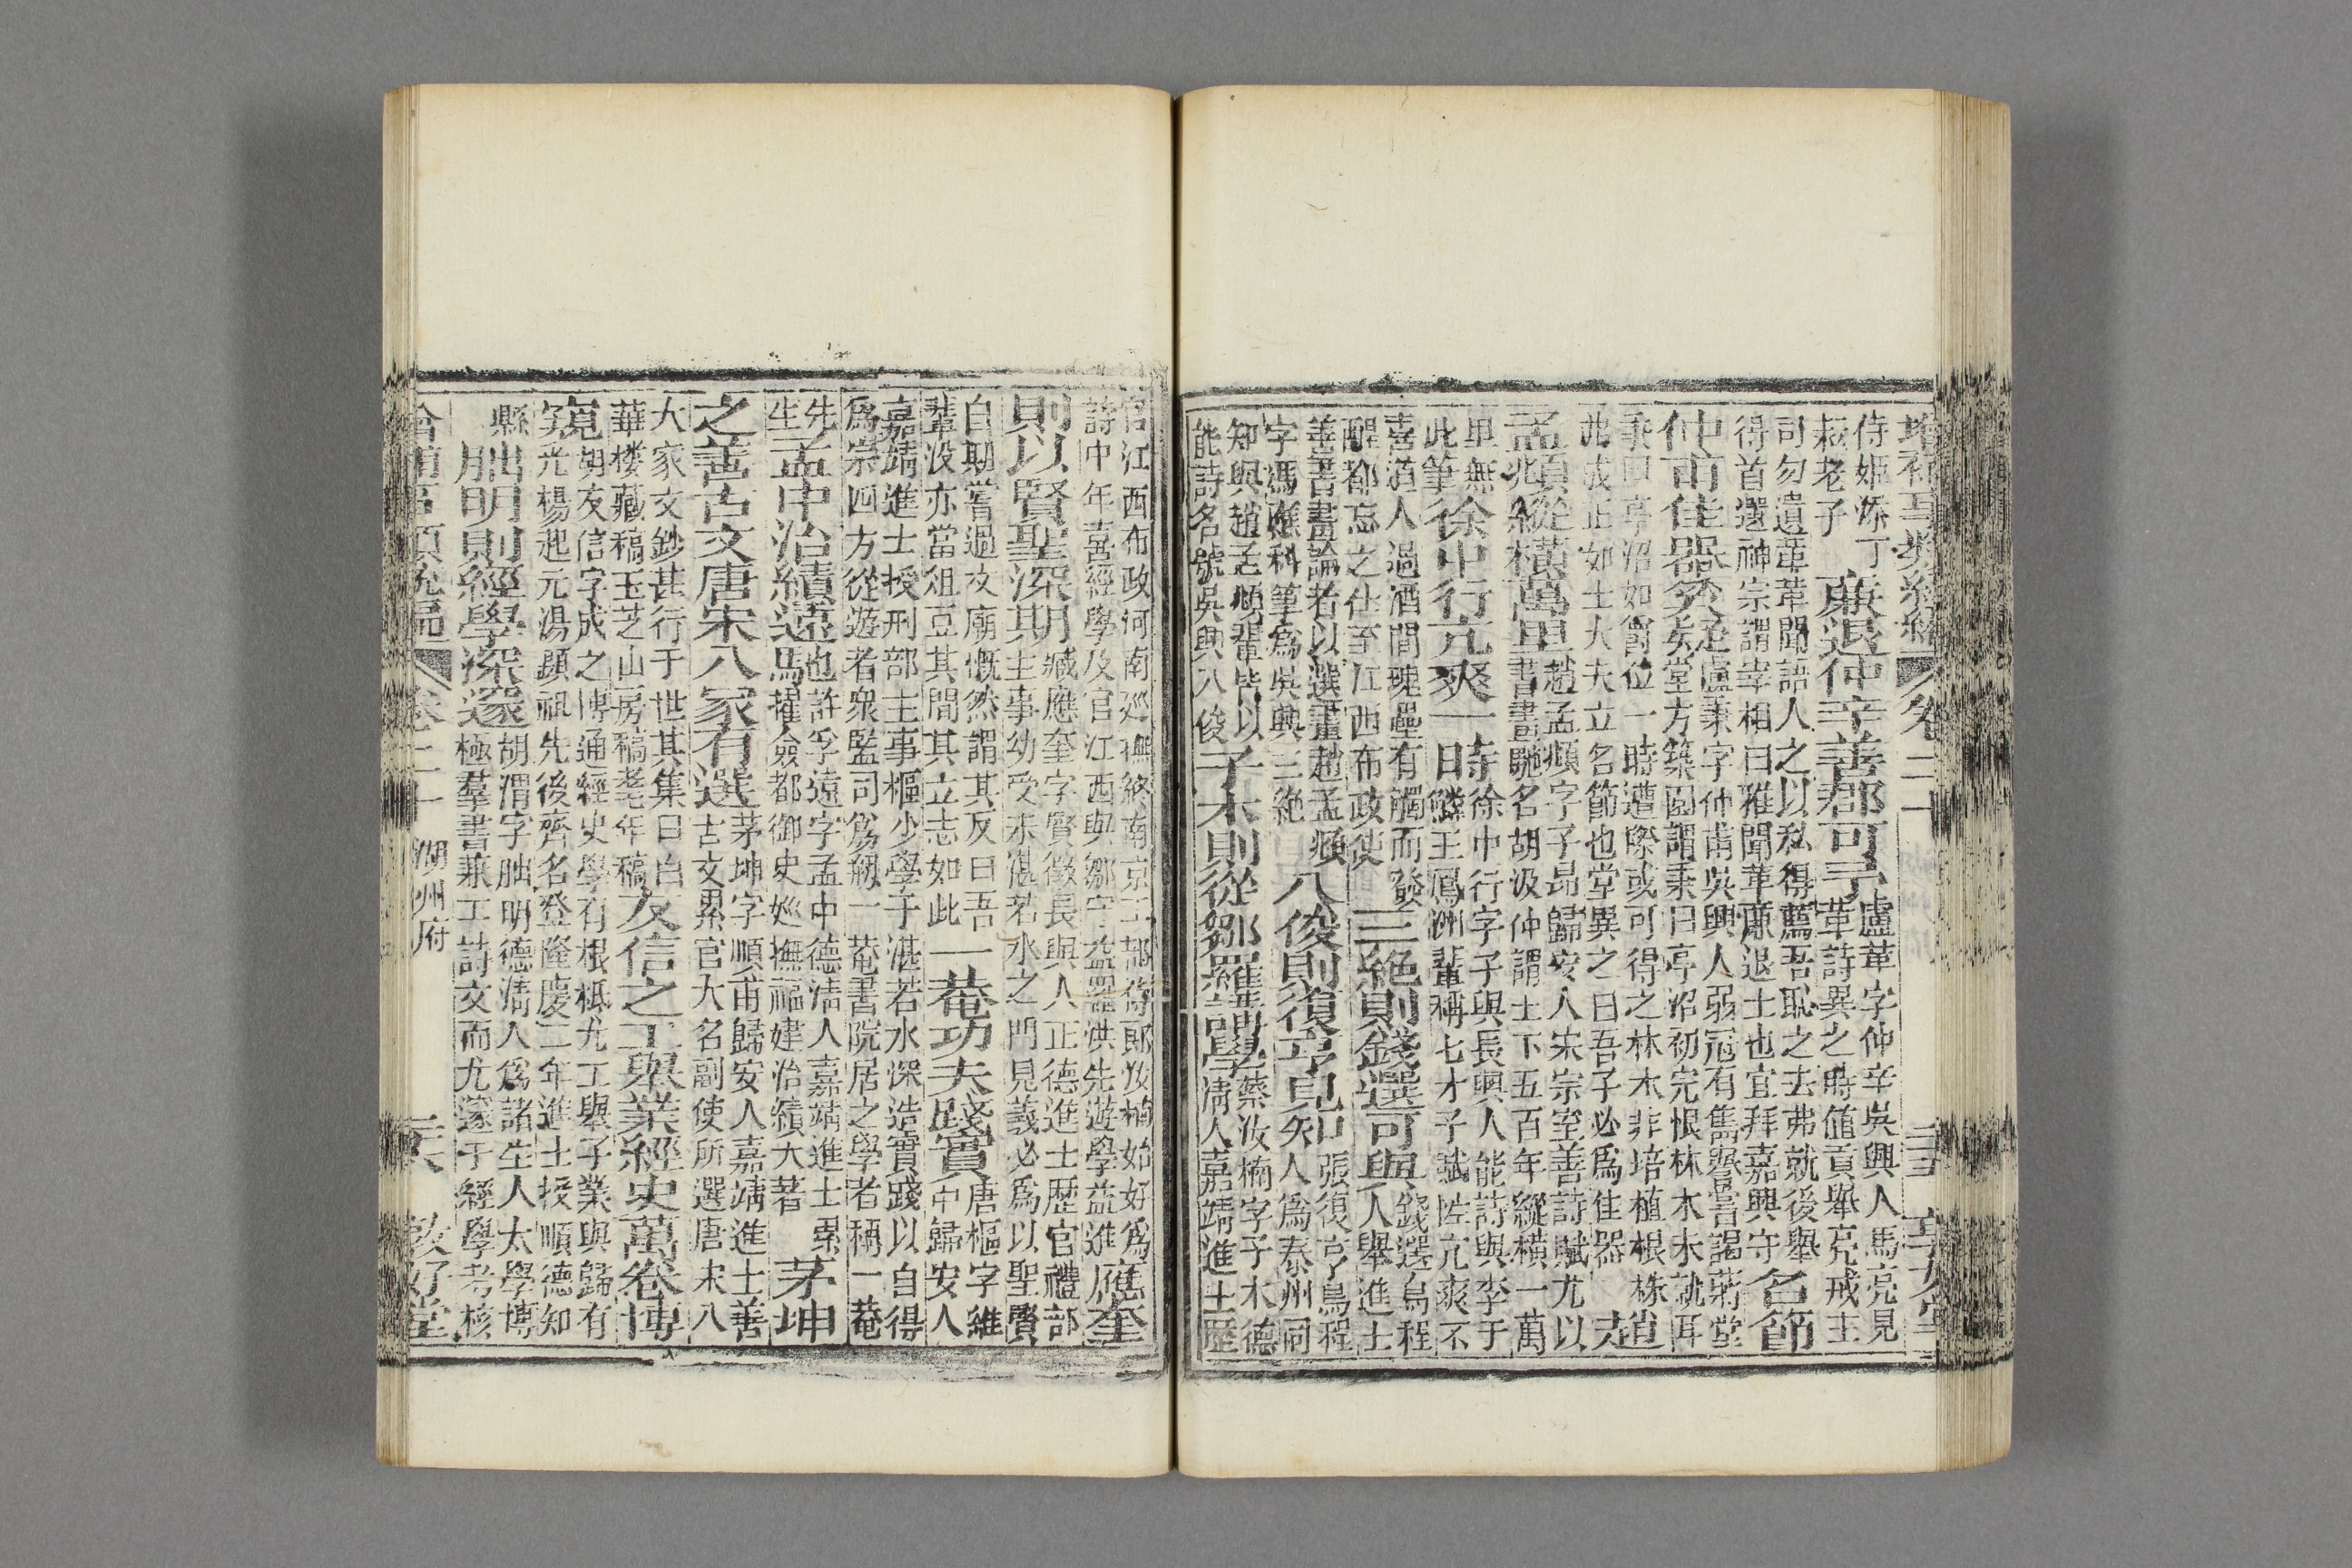 卷二十
侍姬添丁
赧老子
廉退仲辛善郡可予
盧革字仲辛吳興人馬亮見
革詩異之時值貢舉亮戒主
司勿遺革革聞語人之以私得薦吾恥之去弗就後舉
得首選神宗謂宰相曰雅聞革廉退士也宜拜嘉興守
名節
仲甫佳器
盧秉字仲甫吳興人弱冠有雋譽嘗謁蔣堂
堂方築園謂秉曰亭沼初完恨林木未就耳
秉曰亭沼如爵位一時遭際或可得之林木非培植根株
弗成正如士大夫立名節也堂異之曰吾子必爲佳器
趙
孟頫從橫萬里
趙孟頫字子昂歸安人宋宗室善詩賦尤以
書畫馳名胡汲仲謂上下五百年縱橫一萬
里無
此筆
徐中行亢爽一時
徐中行字子與長興人能詩與李于
鱗王鳳洲輩稱七才子賦性亢爽不
喜酒人過酒間磈壘有觸而發
醒都忘之仕至江西布政使
三絶則錢選可與
錢選烏程
人舉進士
善書畫論者以選畫趙孟頫
字馮應科筆爲吳興三絶
八俊則復亨見知
張復亨烏程
人爲泰州同
知與趙孟頫輩皆以
能詩名號吳興八俊
子木則從鄒羅講學
蔡汝楠字子木德
清人嘉靖進士歷
官江西布政河南巡撫終南京工部侍郎汝楠始好爲
詩中年喜經學及官江西與鄒守益羅洪先遊學益進
應奎
則以賢聖深期
臧應奎字賢徵長興人正德進士歷官禮部
主事幼受業湛若水之門見義必爲以聖賢
自期嘗過文廟慨然謂其友曰吾
輩没亦當俎豆其間其立志如此
一菴功夫踐實
唐樞字維
中歸安人
嘉靖進士授刑部主事樞少學于湛若水深造實踐以自得
爲宗四方從遊者衆監司爲剏一菴書院居之學者稱一菴
先
生
孟中治績遠也
許孚遠字孟中德清人嘉靖進士累
擢僉都御史巡撫福建治績大著
茅坤
之善古文唐宋八家有選
茅坤字順甫歸安人嘉靖進士善
古文累官大名副使所選唐宋八
大家文鈔甚行于世其集曰白
華樓藏稿玉芝山房稿耄年稿
友信之工舉業經史萬卷博
窺
胡友信字成之博通經史學有根柢尤工舉子業與歸有
光楊起元湯顯祖先後齊名登隆慶二年進士授順德知
縣
朏明則經學深邃
胡渭字朏明德清人爲諸生人太學博
極羣書兼工詩文而尤邃于經學考核
卷二十
湖州府
敦好堂